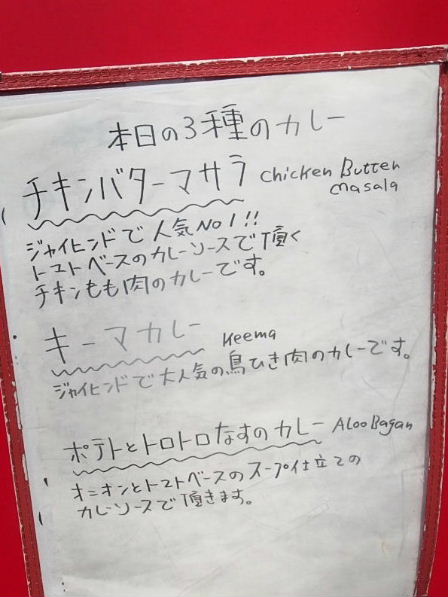 本日の3種のカレー
チキンバターマサラ Chicken Butter
masala
ジャイヒンドで人気No1!!
トマトベースのカレーソースで頂く
チキンもも肉のカレーです。
キーマカレー Keema
ジャイヒンドで大人気の鳥ひき肉のカレーです。
ポテトとトロトロなすのカレー Aloo Bagan
オニオンとトマトベースのスープ仕立ての
カレーソースで頂きます。